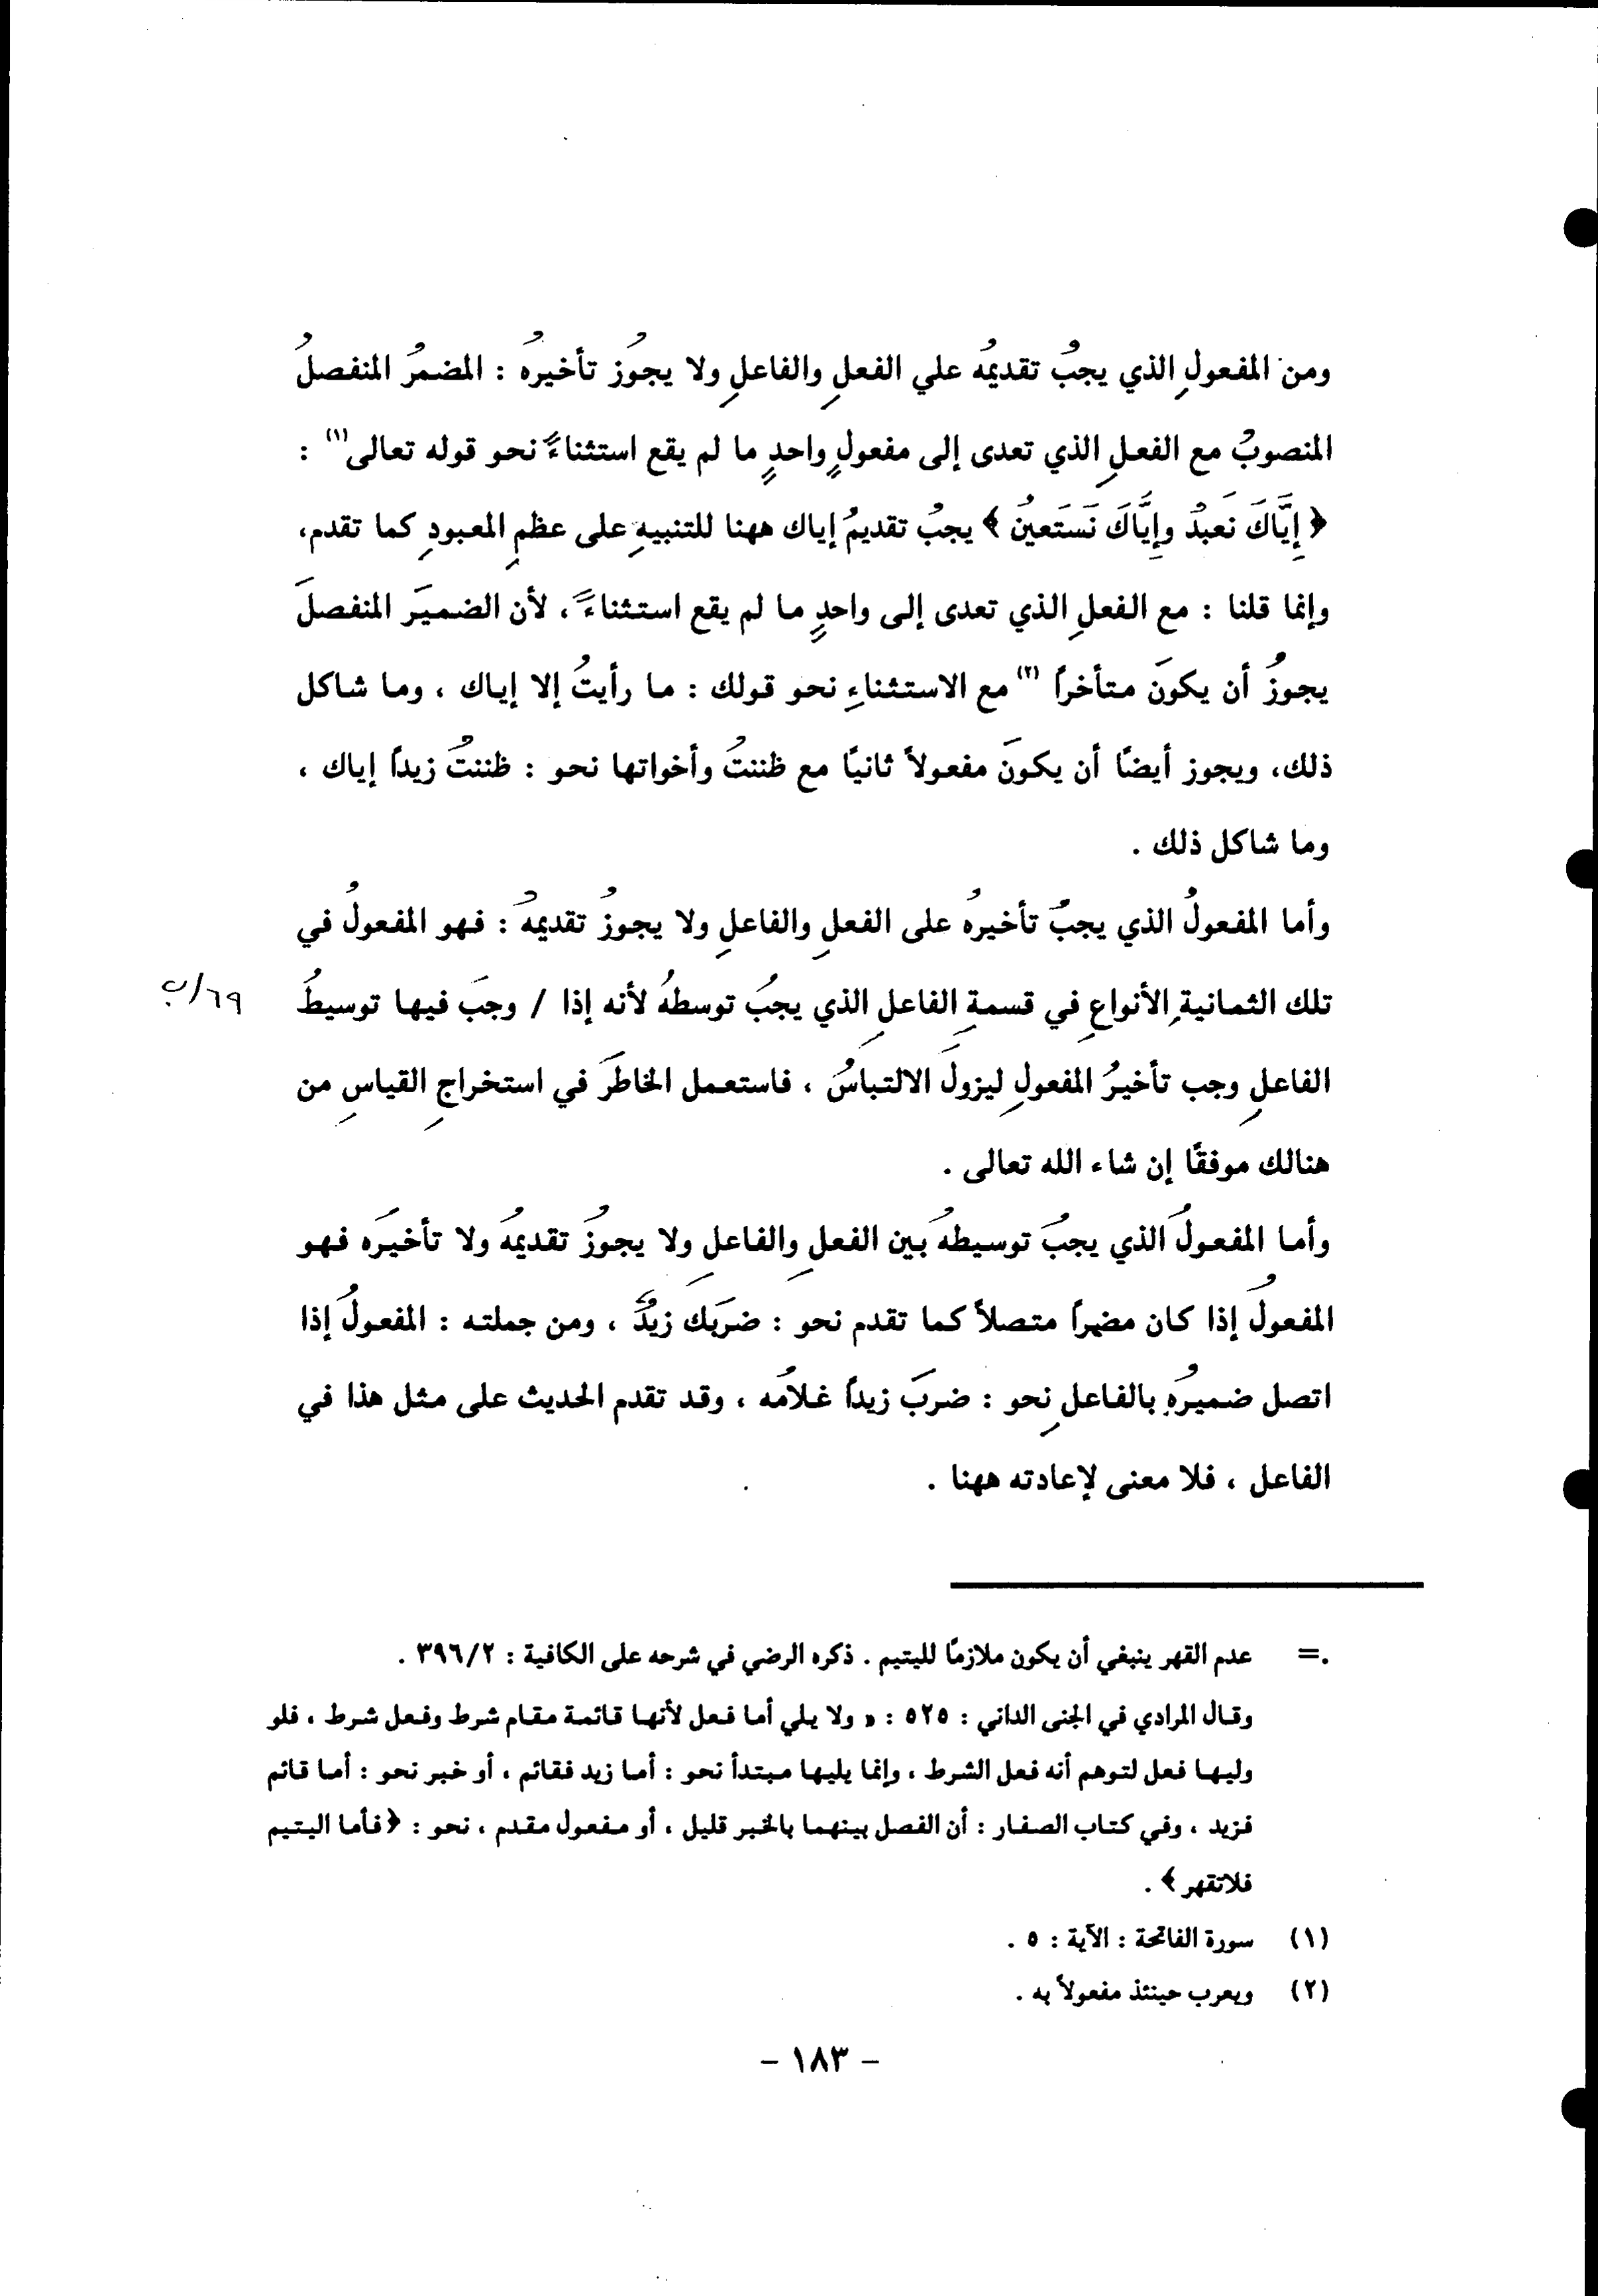 ومن المفعولِ الذي يجبُ تقديمُه علي الفعلِ والفاعلِ ولا يجوزُ تأخيرهُ : المضمرُ المنفصلُ
المنصوبُ مع الفعلِ الذي تعدى إلى مفعولٍ واحدٍ ما لم يقع استثناءً نحو قوله تعالى (١) :
﴿ إِيَّاكَ نَعبُدُ وإِيَّاكَ نَستَعينُ ﴾ يجبُ تقديمُ إياك ههنا للتنبيهِ على عظمِ المعبودِ كما تقدم،
وإنما قلنا : مع الفعلِ الذي تعدى إلى واحدٍ ما لم يقع استثناءً ، لأن الضميرَ المنفصلَ
يجوزُ أن يكونَ متأخراً (٢) مع الاستثناءِ نحو قولك : ما رأيتُ إلا إياك ، وما شاكل
ذلك، ويجوز أيضًا أن يكونَ مفعولاً ثانيًا مع ظننتُ وأخواتها نحو : ظننتُ زيداً إياك ،
وما شاكل ذلك .
وأما المفعولُ الذي يجبُ تأخيرهُ على الفعلِ والفاعلِ ولا يجوزُ تقديمهُ : فهو المفعولُ في
تلك الثمانيةِ الأنواعِ في قسمةِ الفاعلِ الذي يجبُ توسطهُ لأنه إذا / وجبَ فيها توسيطُ ٦٩/ب
الفاعلِ وجب تأخيرُ المفعولِ ليزولَ الالتباسُ ، فاستعمل الخاطرَ في استخراجِ القياسِ من
هنالك موفقًا إن شاء الله تعالى .
وأما المفعولُ الذي يجبُ توسيطهُ بين الفعلِ والفاعلِ ولا يجوزُ تقديمُهُ ولا تأخيرَه فهو
المفعولُ إذا كان مضمراً متصلاً كما تقدم نحو : ضربَك زيدٌ ، ومن جملته : المفعولُ إذا
اتصل ضميرُهِ بالفاعلِ نحو : ضربَ زيداً غلامُه ، وقد تقدم الحديث على مثل هذا في
الفاعل ، فلا معنى لإعادته ههنا .
=. عدم القهر ينبغي أن يكون ملازمًا لليتيم . ذكره الرضي في شرحه على الكافية : ٣٩٦/٢ .
وقال المرادي في الجنى الداني : ٥٢٥ : « ولا يلي أما فعل لأنها قائمة مقام شرط وفعل شرط ، فلو
وليها فعل لتوهم أنه فعل الشرط ، وإنما يليها مبتدأ نحو : أما زيد فقائم ، أو خبر نحو : أما قائم
فزيد ، وفي كتاب الصفار : أن الفصل بينهما بالخبر قليل ، أو مفعول مقدم ، نحو : ﴿ فأما اليتيم
فلاتقهر ﴾ .
(١) سورة الفاتحة : الآية : ٥ .
(٢) ويعرب حينئذ مفعولاً به .
- ١٨٣ -